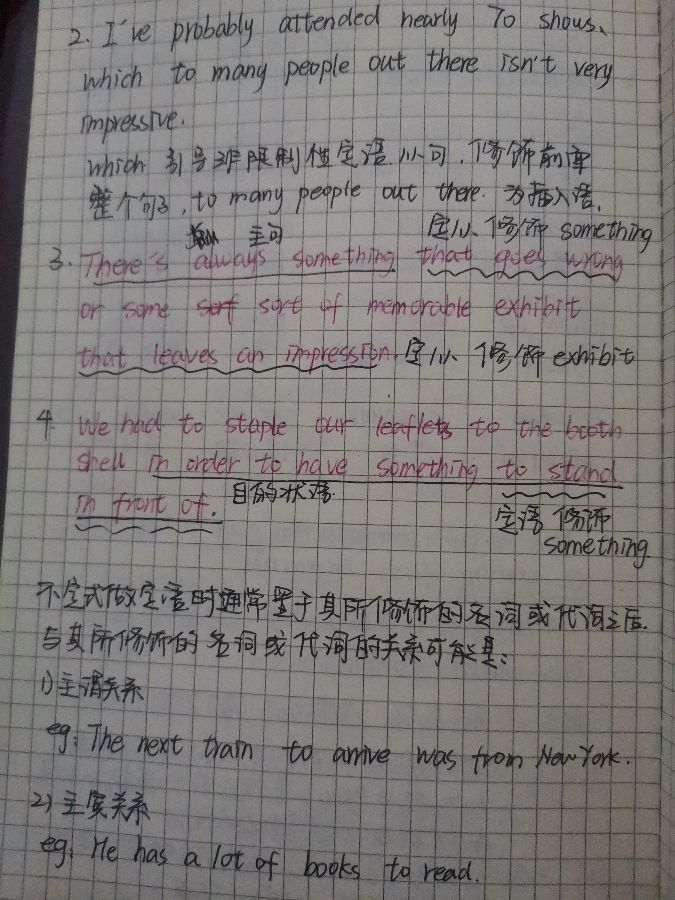 2. I've probably attended nearly 70 shows,
which to many people out there isn't very
impressive.
which 引导非限制性定语从句,修饰前面
整个句子, to many people out there. 为插入语.
主句 定从、修饰 something
3. There's always something that goes wrong
or some sort sort of memorable exhibit
that leaves an impression. 定从、修饰 exhibit
4. We had to staple our leaflets to the booth
shell in order to have something to stand
in front of. 目的状语. 定语 修饰
something.
不定式做定语时通常置于其所修饰的名词或代词之后.
与其所修饰的名词或代词的关系可能是:
1) 主谓关系
eg: The next train to arrive was from New York.
2) 主宾关系
eg: He has a lot of books to read.